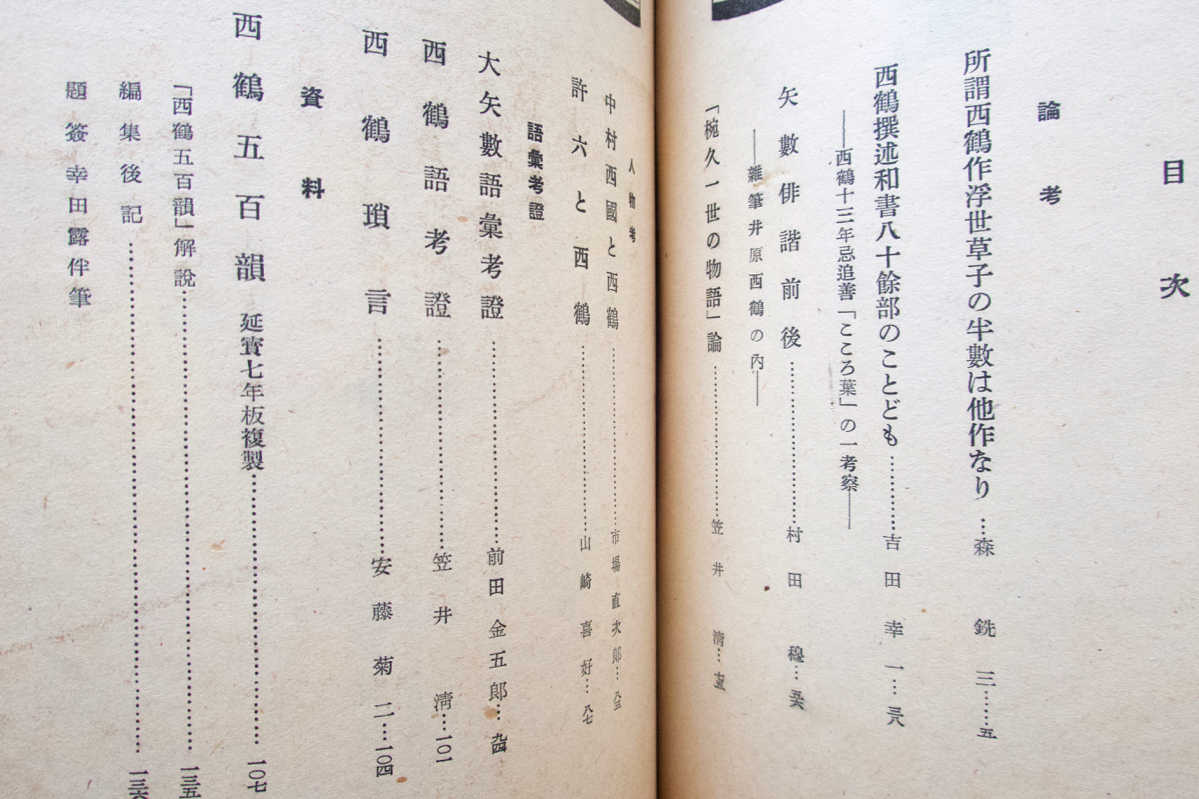 目次
論考
所謂西鶴作浮世草子の半數は他作なり…森銑三……五
西鶴撰述和書八十餘部のことども…………吉田幸一…三八
――西鶴十三年忌追善「こころ葉」の一考察――
矢數俳諧前後…………村田穆…五六
――雜筆井原西鶴の內――
「椀久一世の物語」論…………笠井清…
人物考
中村西國と西鶴…………市場直次郎…
許六と西鶴…………山崎喜好…八七
語彙考證
大矢數語彙考證…………前田金五郎…九四
西鶴語考證…………笠井清…一〇一
西鶴瑣言…………安藤菊二…一〇四
資料
西鶴五百韻 延寶七年板複製…………一〇七
「西鶴五百韻」解說…………一三五
編集後記…………一三六
題簽 幸田露伴筆